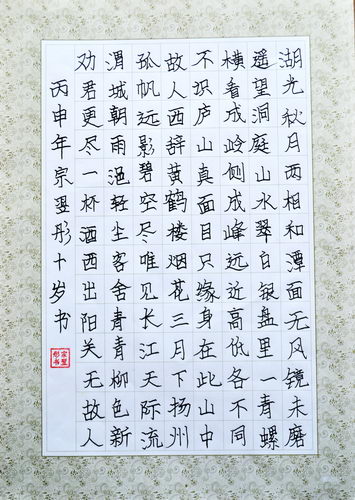 湖光秋月两相和潭面无风镜未磨
遥望洞庭山水翠白银盘里一青螺
横看成岭侧成峰远近高低各不同
不识庐山真面目只缘身在此山中
故人西辞黄鹤楼烟花三月下扬州
孤帆远影碧空尽唯见长江天际流
渭城朝雨浥轻尘客舍青青柳色新
劝君更尽一杯酒西出阳关无故人
丙申年宗翌彤十岁书
宗翌
彤书